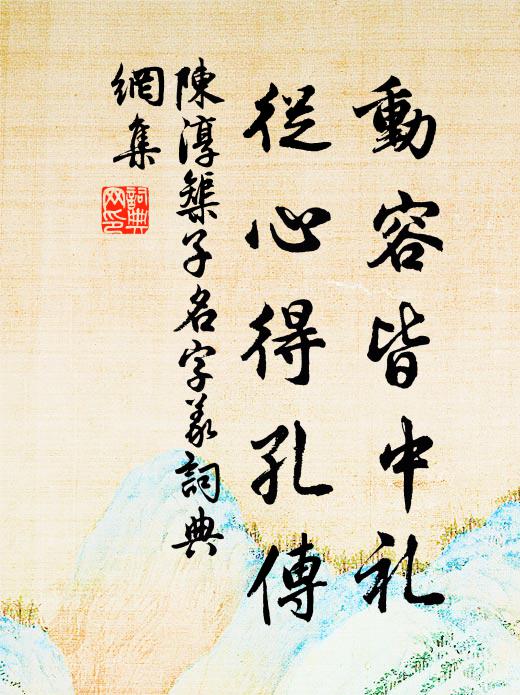 動容皆中礼
從心得孔傳
陳淳榘子名字義詞典
網集
詞典
网印